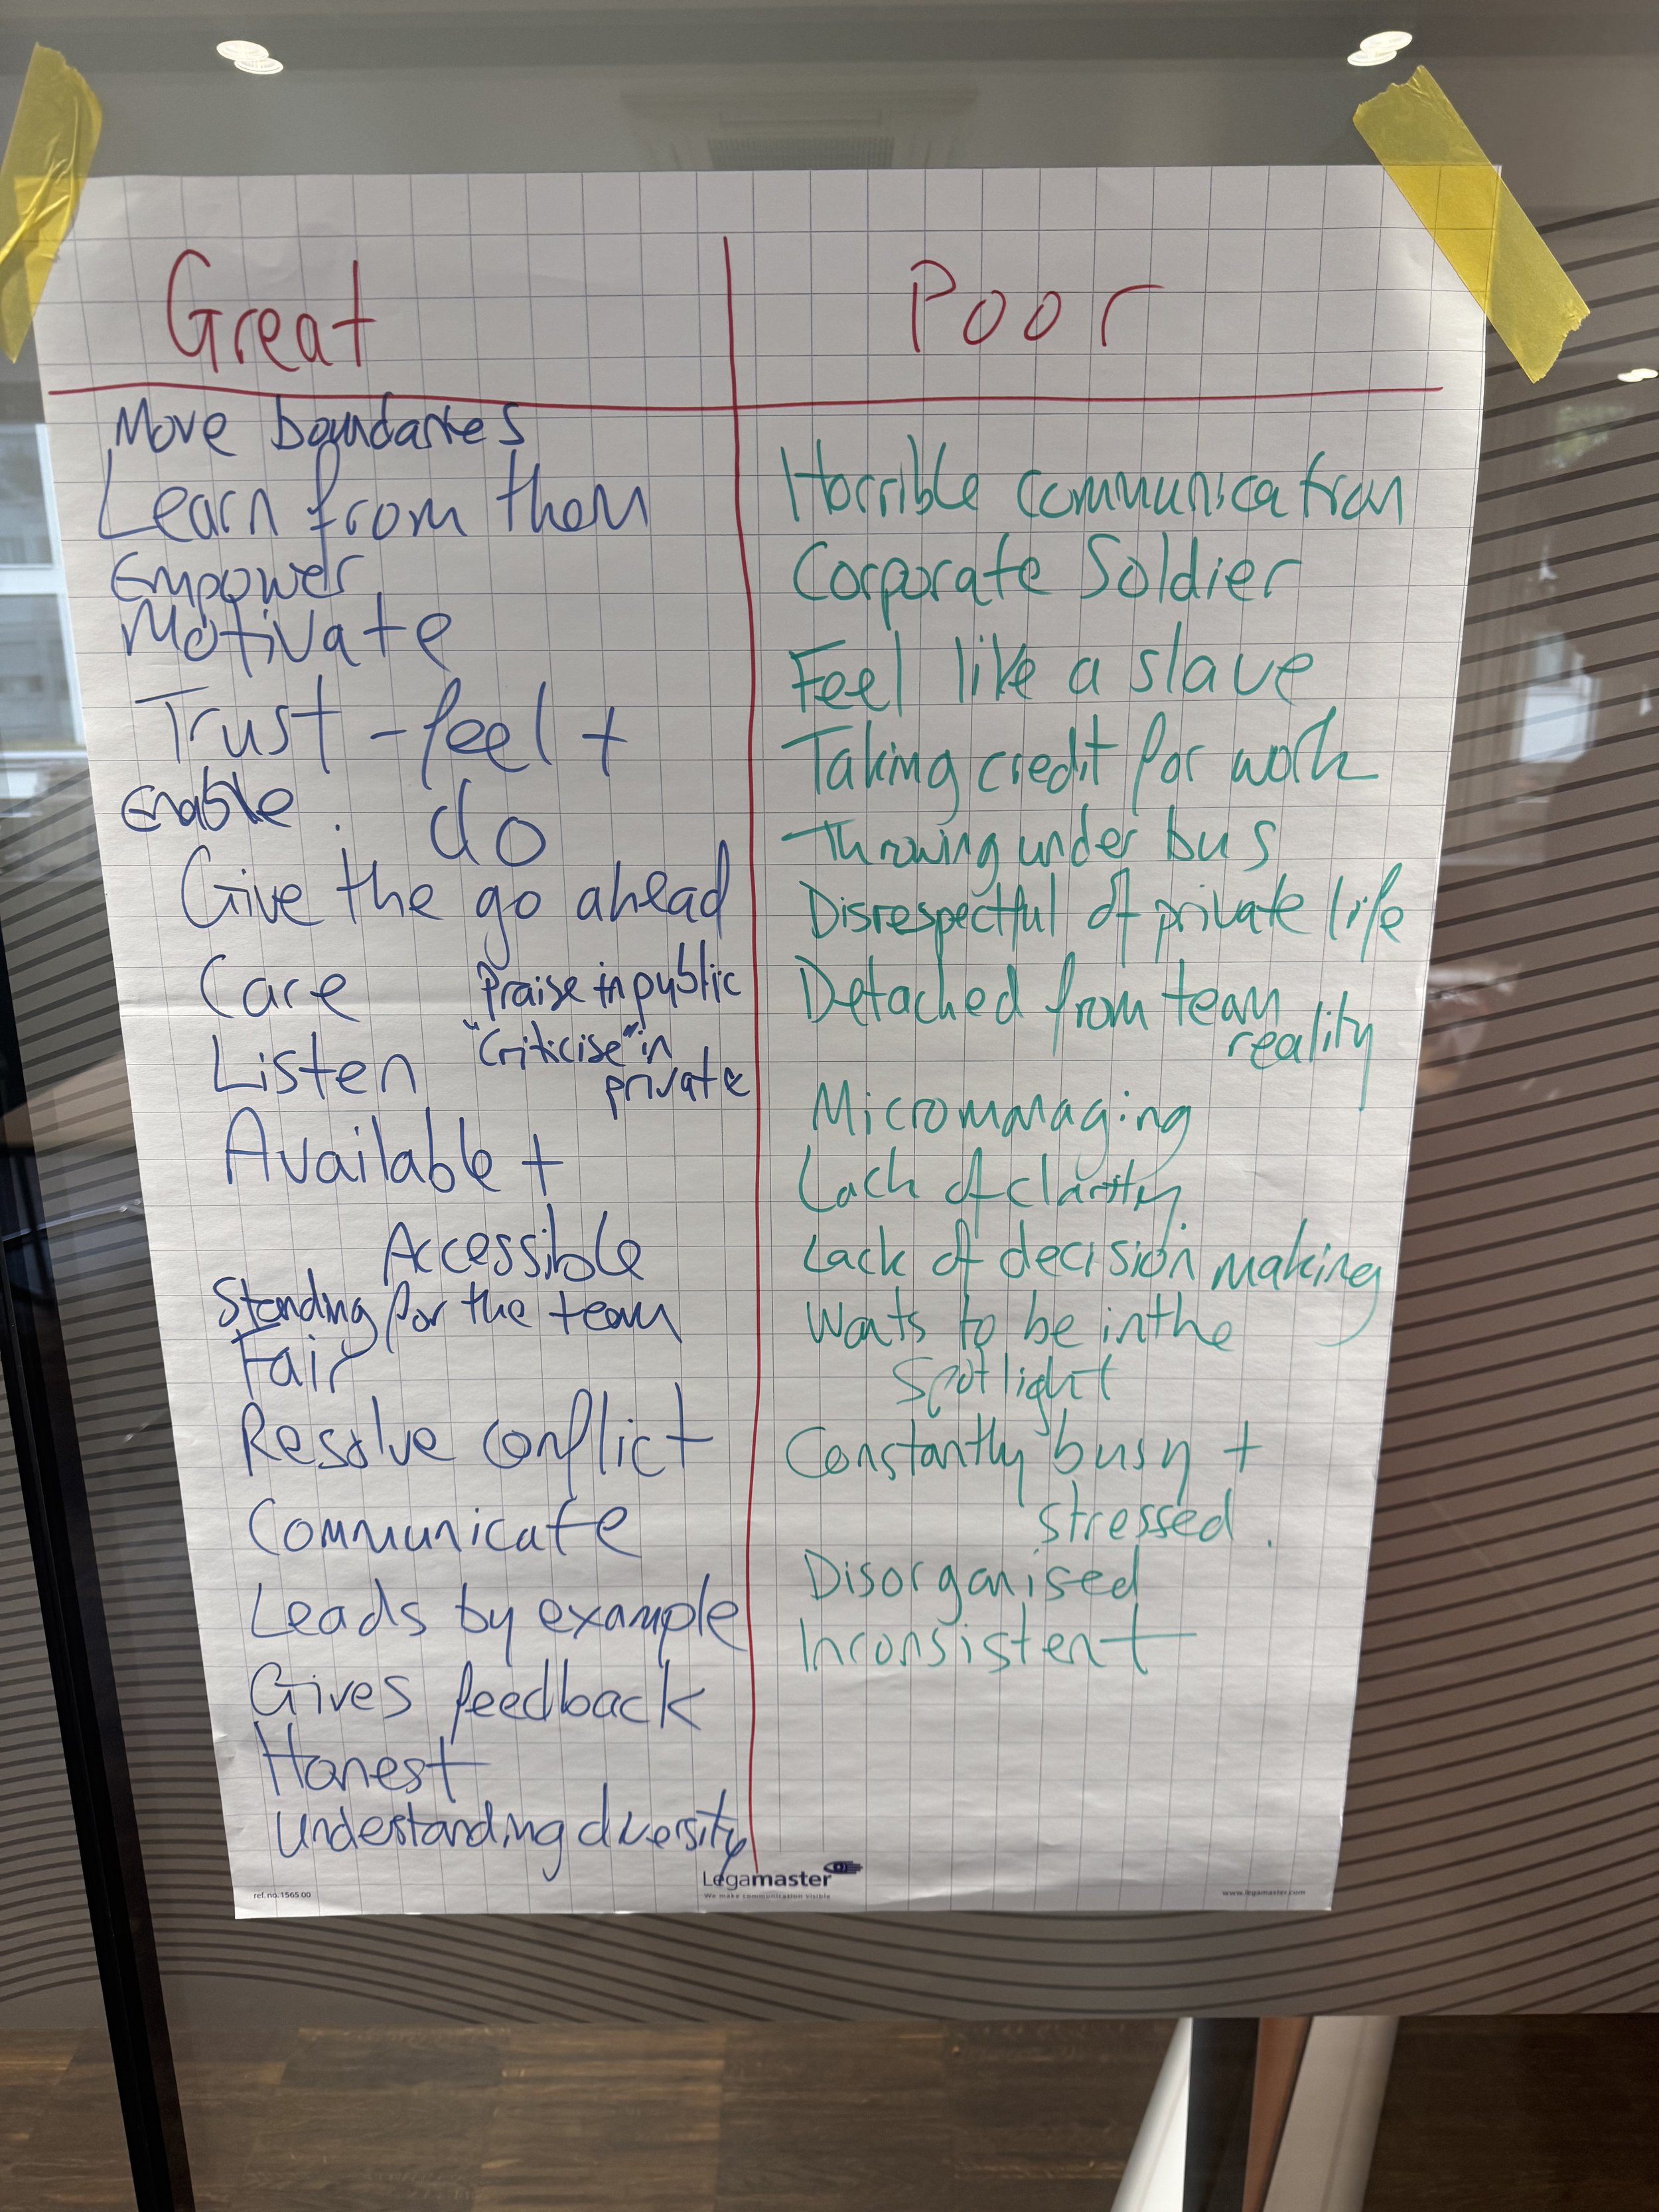 Great
Poor
Move boundaries
Learn from them
Empower
Motivate
Trust - feel +
do
Enable
Give the go ahead
Care
Praise in public
"Criticise" in
private
Listen
Available +
Accessible
Standing for the team
Fair
Resolve conflict
Communicate
Leads by example
Gives feedback
Honest
Understanding diversity
Horrible communication
Corporate Soldier
Feel like a slave
Taking credit for work
Throwing under bus
Disrespectful of private life
Detached from team
reality
Micromanaging
Lack of clarity
Lack of decision making
Wants to be in the
Spotlight
Constantly busy +
stressed.
Disorganised
Inconsistent
Legamaster
We make communication visible
ref.no.1565 00
www.legamaster.com